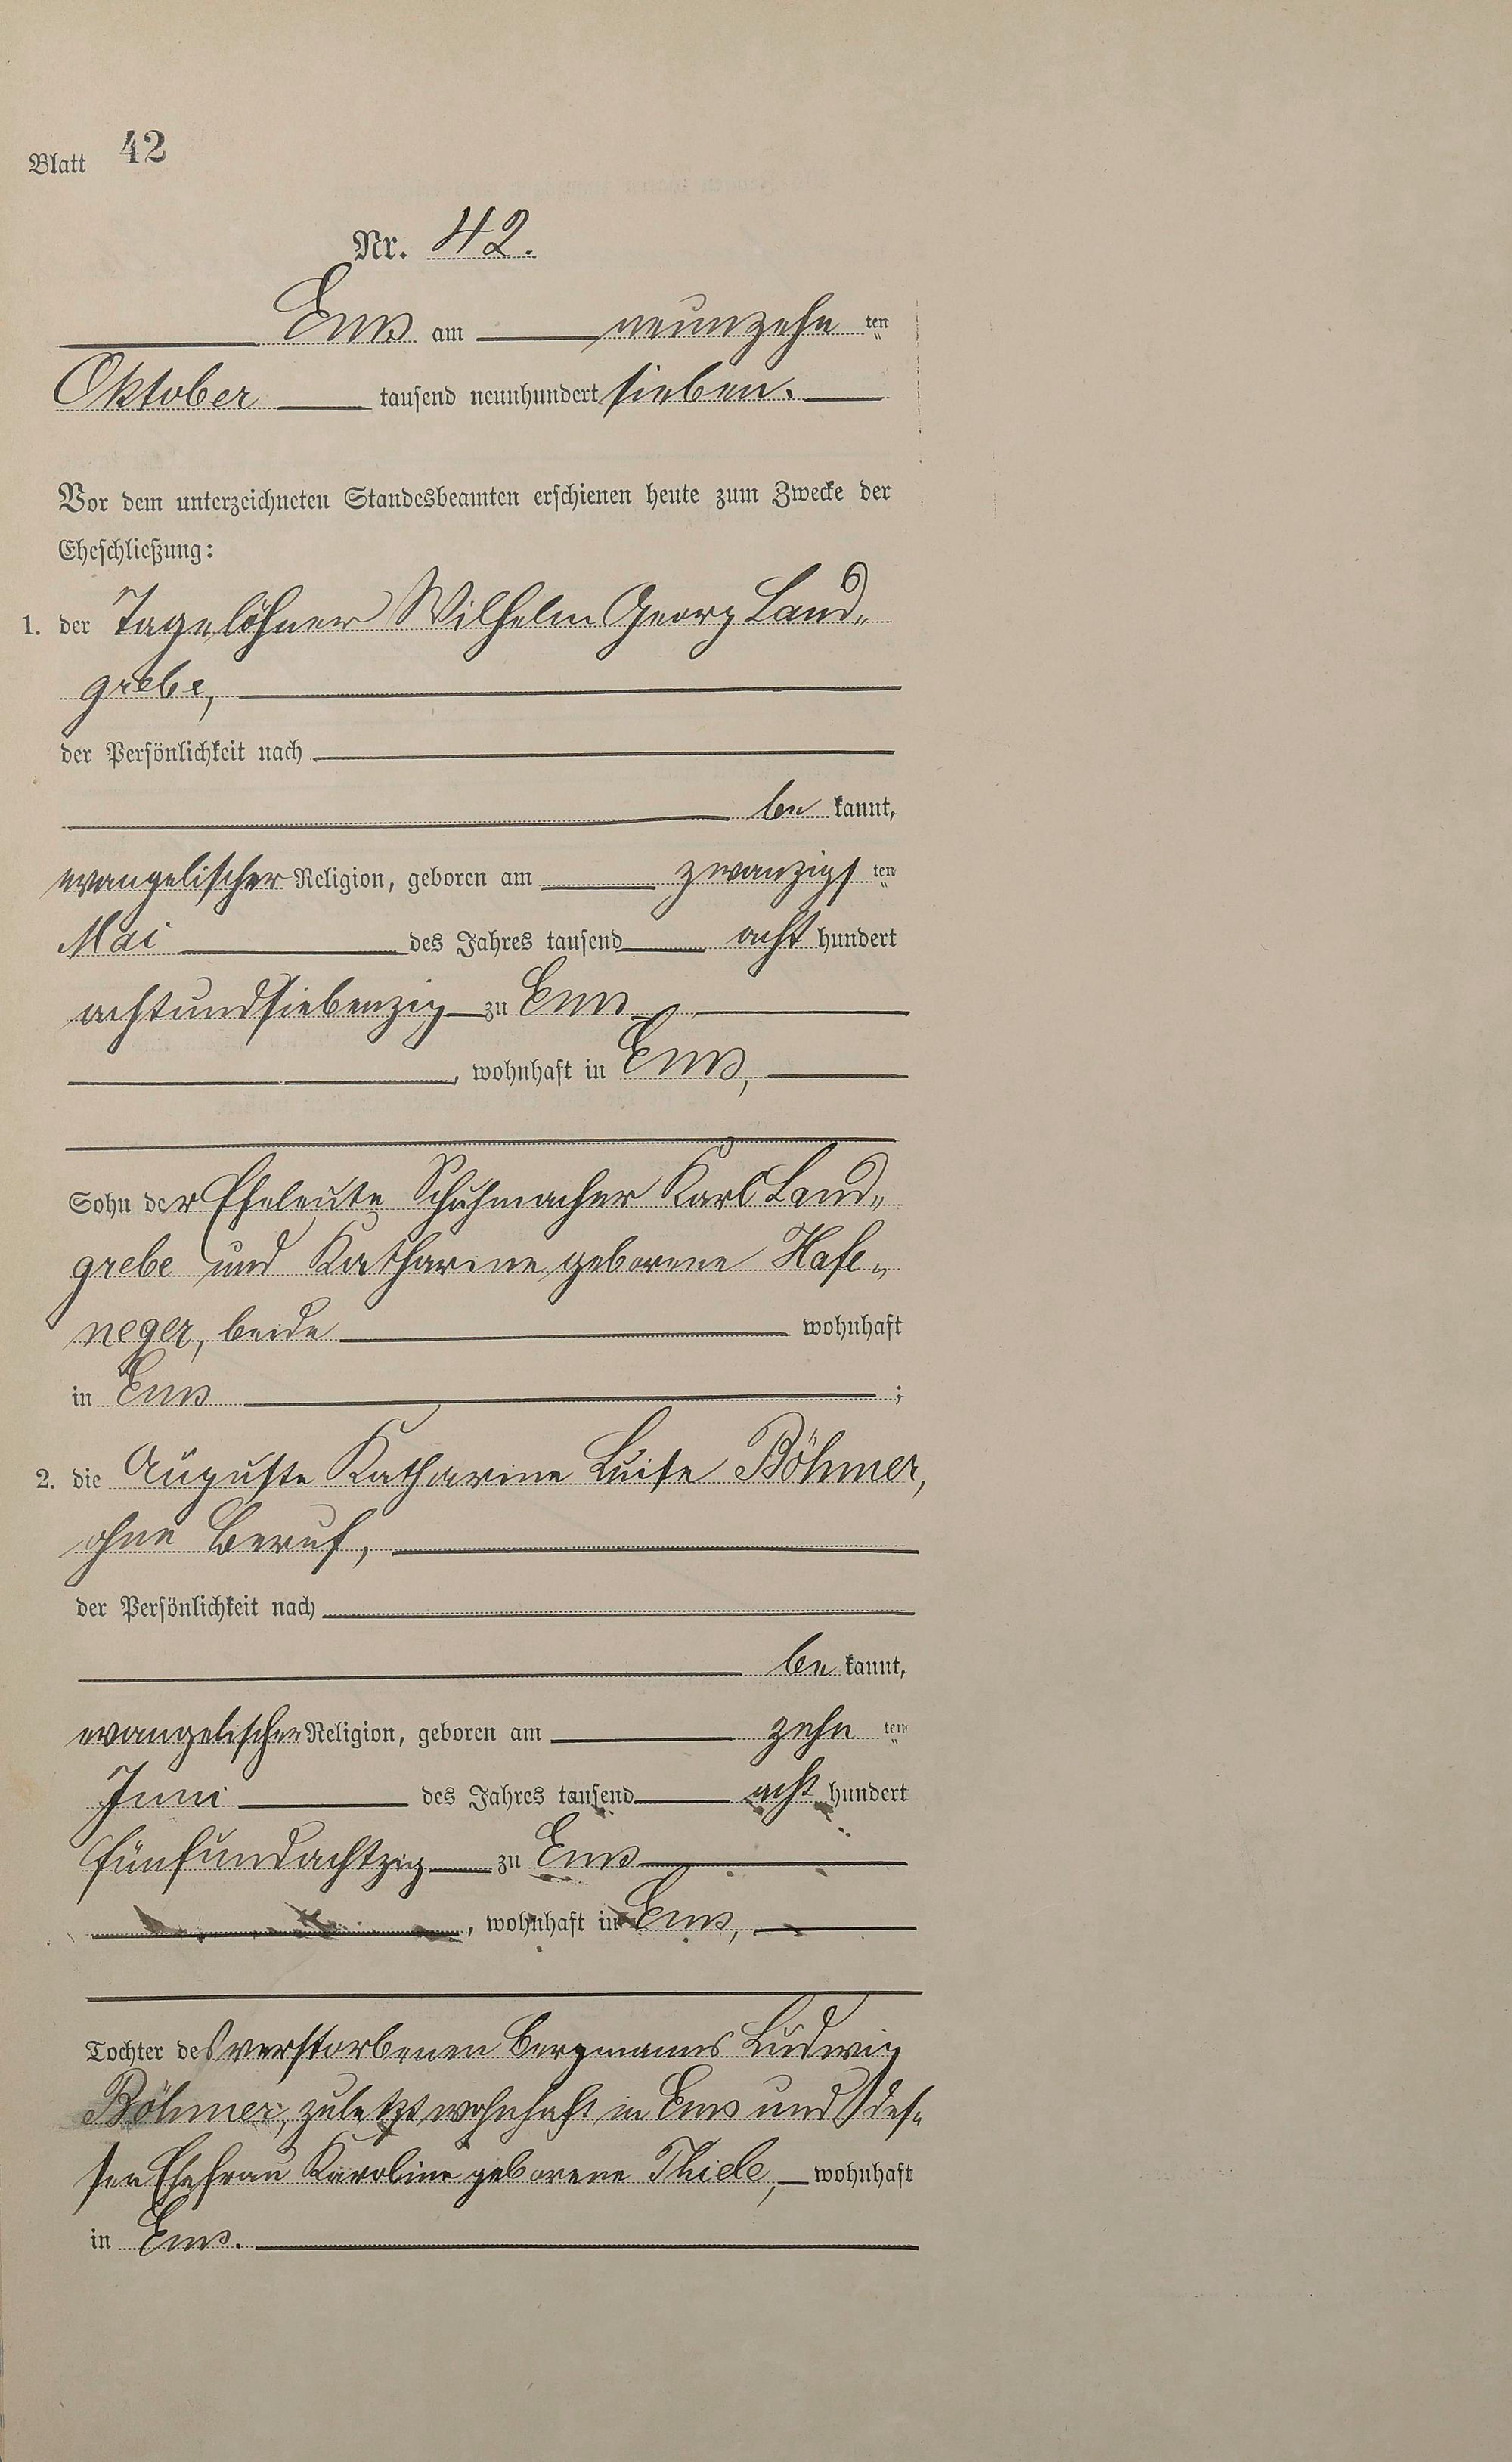 Blatt 42
Nr. 42.
Ems am neunzehn ten
Oktober tausend neunhundert sieben.
Vor dem unterzeichneten Standesbeamten erschienen heute zum Zwecke der
Eheschließung:
1. der Tagelöhner Wilhelm Georg Land„
grebe,
der Persönlichkeit nach
be kannt,
evangelischer Religion, geboren am zwanzigs ten
Mai des Jahres tausend acht hundert
achtundsiebenzig zu Ems
, wohnhaft in Ems,
Sohn der Eheleute Schuhmacher Karl Land„
grebe und Katharine geborene Hafe„
neger, beide wohnhaft
in Ems ;
2. die Auguste Katharine Luise Böhmer,
ohne Beruf,
der Persönlichkeit nach
be kannt,
evangelischer Religion, geboren am zehn ten
Juni des Jahres tausend acht hundert
fünfundachtzig zu Ems
, wohnhaft in Ems,
Tochter des verstorbenen Bergmanns Ludwig
Böhmer, zuletzt wohnhaft in Ems und des„
sen Ehefrau Karoline geborene Thiele, wohnhaft
in Ems.